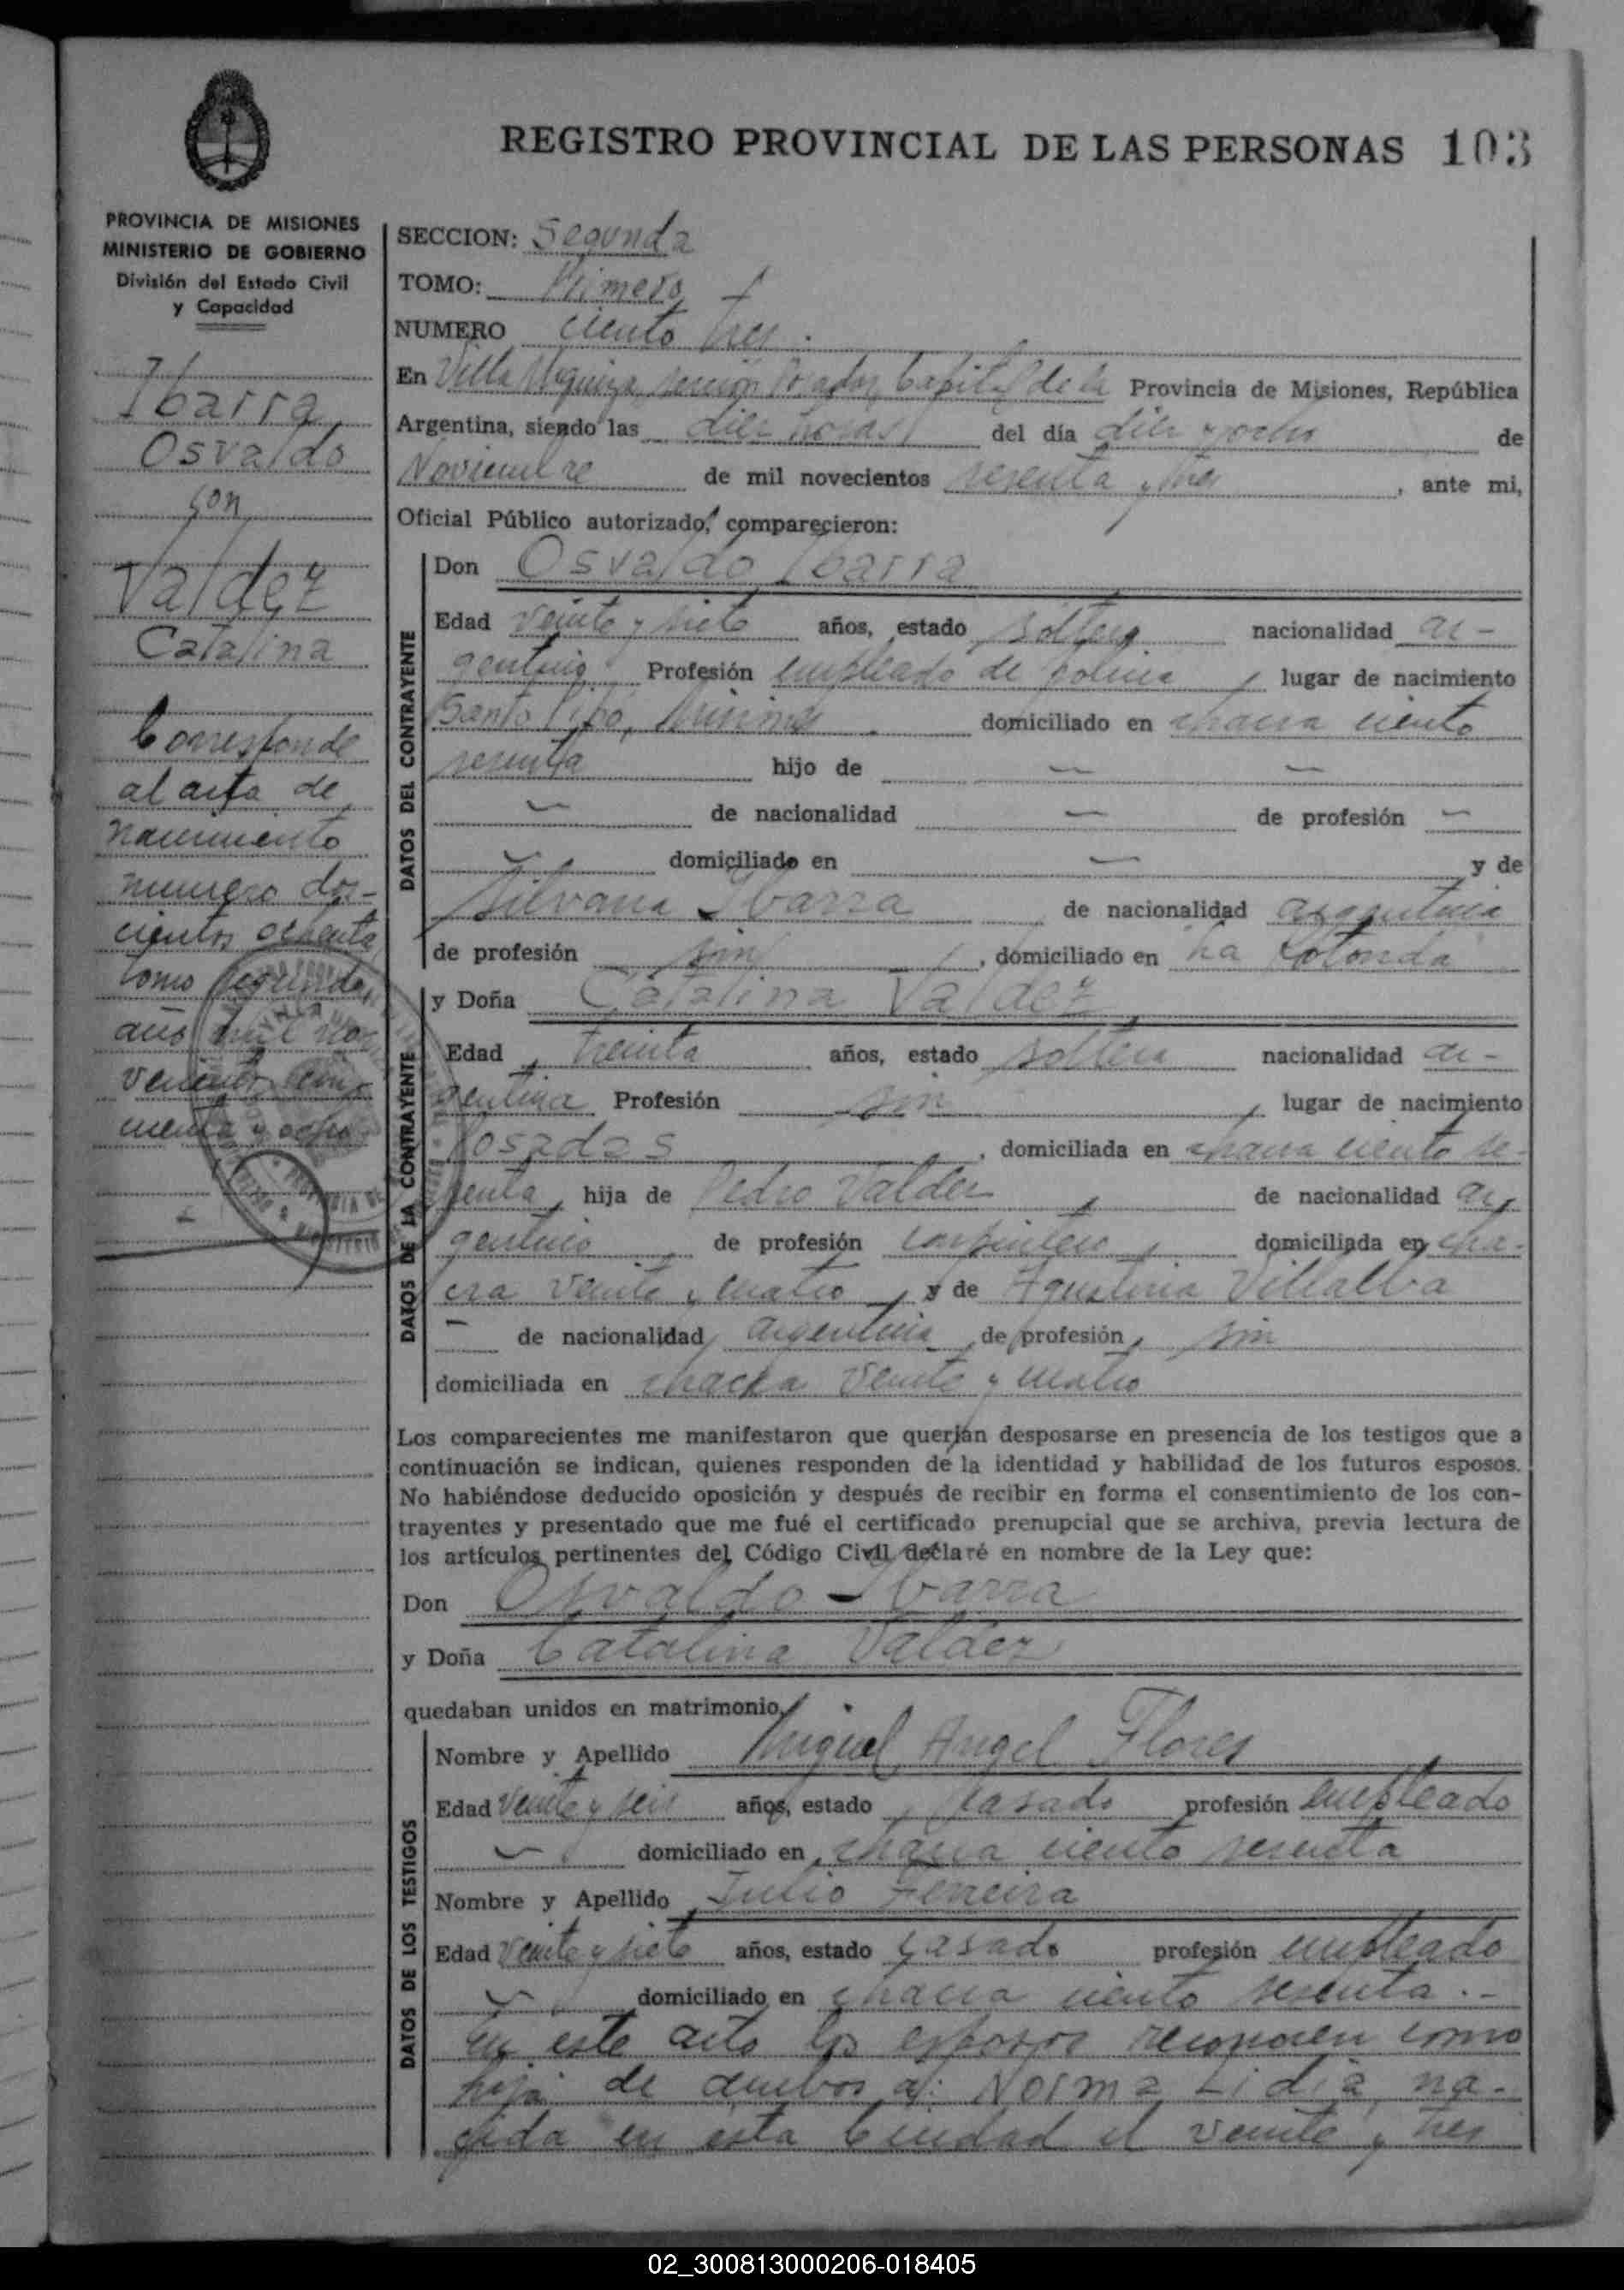 REGISTRO PROVINCIAL DE LAS PERSONAS 103
PROVINCIA DE MISIONES
MINISTERIO DE GOBIERNO
División del Estado Civil
y Capacidad
Ibarra
Osvaldo
con
Valdez
Catalina
Corresponde
al acta de
nacimiento
numero dos-
cientos ochenta
tomo segundo
año mil no-
vecientos cin-
cuenta y ocho
SECCION: Segunda
TOMO: Primero
NUMERO ciento tres.
En Villa Urquiza, sección Posadas, Capital de la Provincia de Misiones, República
Argentina, siendo las diez horas del día diez y ocho de
Noviembre de mil novecientos sesenta y tres, ante mi,
Oficial Público autorizado, comparecieron:
DATOS DEL CONTRAYENTE
Don Osvaldo Ibarra
Edad veinte y siete años, estado soltero nacionalidad ar-
gentino Profesión empleado de policia, lugar de nacimiento
Santo Pipó, Misiones. domiciliado en chacra ciento
sesenta hijo de — —
— de nacionalidad — de profesión —
— domiciliado en — y de
Silvana Ibarra de nacionalidad argentina
de profesión sin, domiciliado en La Rotonda
DATOS DE LA CONTRAYENTE
y Doña Catalina Valdez
Edad treinta años, estado soltera nacionalidad ar-
gentina Profesión sin, lugar de nacimiento
Posadas, domiciliada en chacra ciento se-
senta, hija de Pedro Valdez, de nacionalidad ar-
gentino de profesión carpintero, domiciliada en cha-
cra veinte y cuatro, y de Agustina Villalba
— de nacionalidad argentina de profesión, sin
domiciliada en chacra veinte y cuatro
Los comparecientes me manifestaron que querían desposarse en presencia de los testigos que a
continuación se indican, quienes responden de la identidad y habilidad de los futuros esposos.
No habiéndose deducido oposición y después de recibir en forma el consentimiento de los con-
trayentes y presentado que me fué el certificado prenupcial que se archiva, previa lectura de
los artículos pertinentes del Código Civil declaré en nombre de la Ley que:
Don Osvaldo Ibarra
y Doña Catalina Valdez
quedaban unidos en matrimonio,
DATOS DE LOS TESTIGOS
Nombre y Apellido Miguel Angel Flores
Edad veinte y seis años, estado casado profesión empleado
— domiciliado en chacra ciento sesenta
Nombre y Apellido Julio Ferreira
Edad veinte y siete años, estado casado profesión empleado
— domiciliado en chacra ciento sesenta.-
En este acto los esposos reconocen como
hija de ambos a: Norma Lidia, na-
cida en esta Ciudad el veinte y tres
02_300813000206-018405